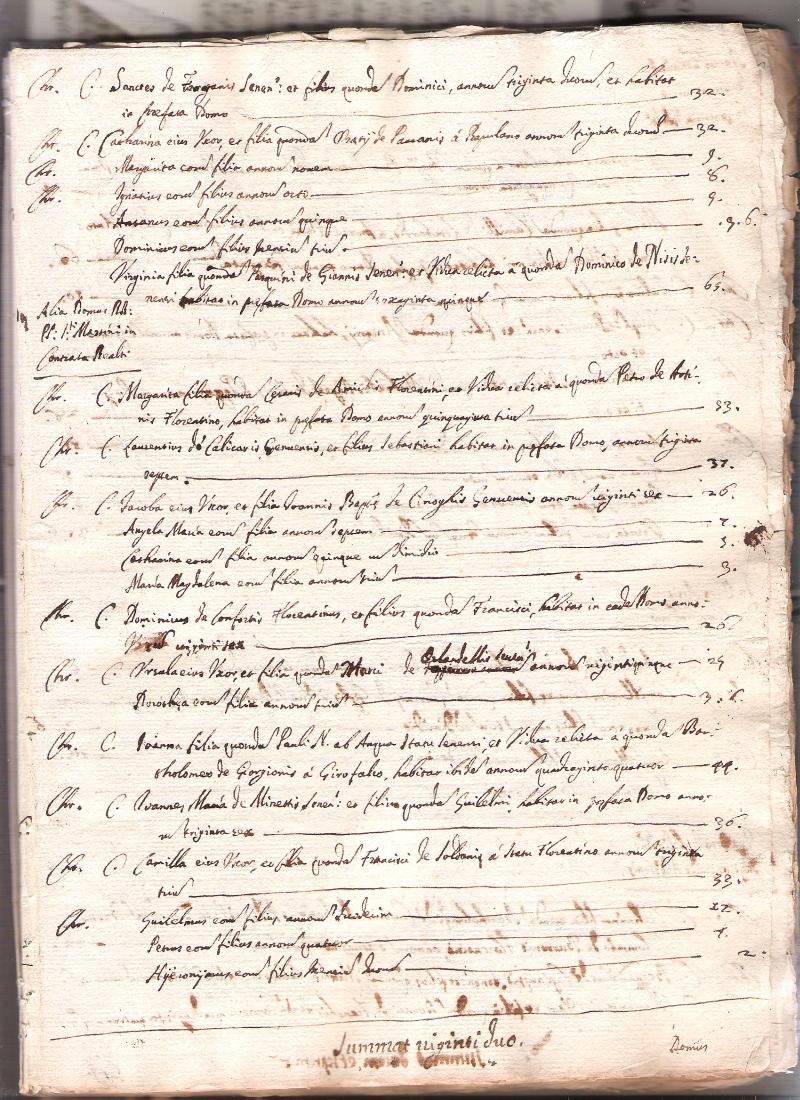 Chr. C. Sanctes de Senen: et filius quonda Dominici, annoru triginta duoru, et habitat
in prefata Domo 32.
Chr. C. Catharina eius Vxor, et filia quonda de à Rapolano annoru triginta duoru 32.
Chr. Margarita eoru filia annoru nonem 9.
Chr. Ignatius eoru filius annoru octo 8.
Ansanus eoru filius annoru quinque
Dominicus eoru filius mensiu triu
Virginia filia quonda Pasquini de Giannis Senen: et Vidua relicta à quonda Dominico de Nisis se-
nensi habitat in prefata Domo annoru sexaginta quinque 65.
Alia Domus RR:
PP: S. Martini in
Contrata Realti
Chr. C. Margarita filia quonda Cesaris de Florentini, et Vidua relicta à quonda Petro de
nis Florentino, habitat in prefata Domo annoru quinquaginta triu 53.
Chr. C. Laurentius de Calicaris Genuensis, et filius Sebastiani habitat in prefata Domo, annoru triginta
septem. 37.
Chr. C. Iacoba eius Vxor, et filia Ioannis Bapte de Genuensis annoru uiginti sex 26.
Angela Maria eoru filia annoru septem 7.
Catharina eoru filia annoru quinque cu dimidio 5.
Maria Magdalena eoru filia annoru triu 3.
Chr. C. Dominicus de Confortis Florentinus, et filius quonda Francisci, habitat in eade Domo anno-
ru uiginti sex 26.
Chr. C. Vrsula eius Vxor, et filia quonda Marci de Orlandellis senen: annoru uigintiquinque 25
Dorothea eoru filia annoru triu
Chr. C. Ioanna filia quonda Pauli N. ab Aqua Statu senensi, et Vidua relicta à quonda Bar-
tholomeo de Gorgionis à Girofalco, habitat ibide annoru quadraginta quatuor 44.
Chr. C. Ioannes Maria de Minettis Senen: et filius quonda Guilelmi, habitat in prefata Domo anno-
ru triginta sex 36.
Chr. C. Camilla eius Vxor, et filia quonda Francisci de Soldanis à Statu Florentino annoru triginta
triu 33.
Chr. Guilelmus eoru filius annoru duodecim 12.
Petrus eoru filius annoru quatuor 4.
Hyeronijmus eoru filius mensiu duoru 2.
Summat uiginti duo.
Domus